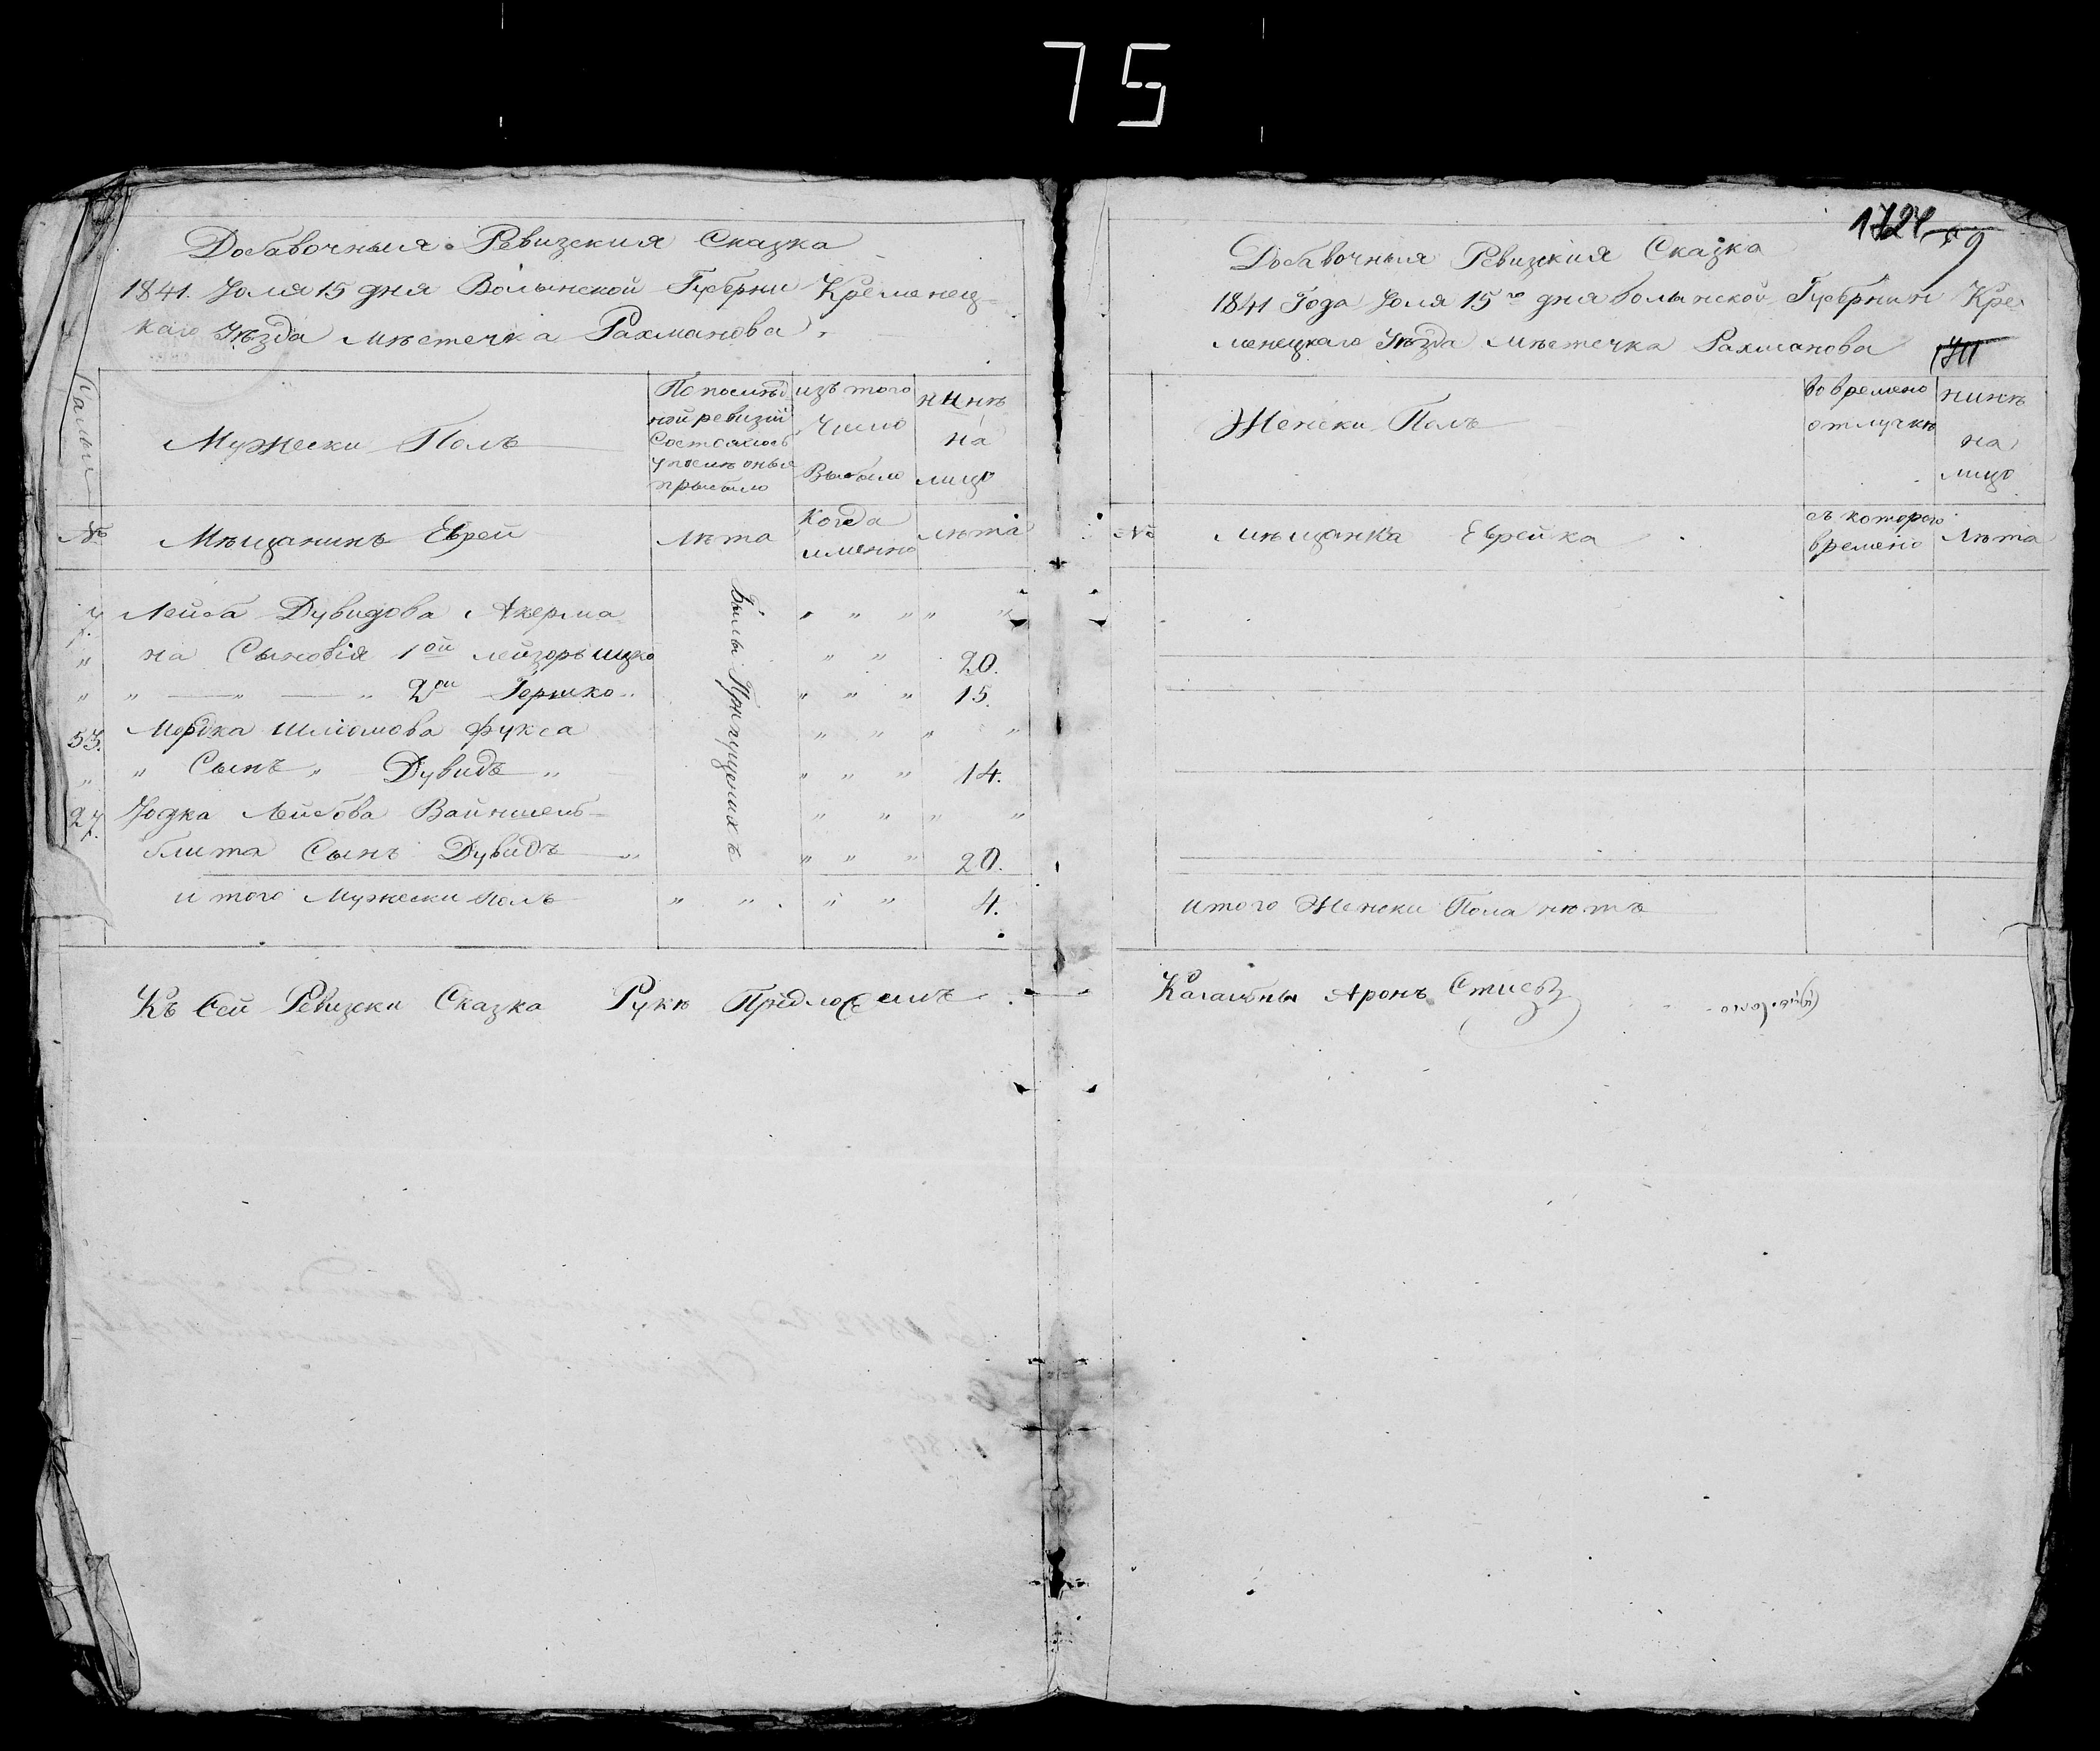 75
Добавочныя Ревизския Сказка
1841. Юля 15 дня Волынской Губерни Кременец-
каго Уѣзда мѣстечка Рахманова
Мужески Полъ
По послѣд
ной ревизіи
состоялось
прибыло
изъ того
число
Выбыло
нинѣ
на
лицо
№
Мѣщанинъ Еврей
лѣта
Когда
именно
лѣта
Были Прапущенихъ
7. Лейба Дувидова Акерма
" на Сыновія 1ой Лейзоръ Ицко " " 20.
" " — " — " 2ой Гершко " " " 15.
53. Мордка Шліомова Фукса " " " "
" " Сынъ " Дувидъ " " " " 14.
27. Іодка Лейбова Вайншель- " " " "
блита Сынъ Дувидъ " " " " 20.
и того Мужески Полъ " " " " 4.
Къ Сей Ревизски Сказка Рукѣ Придложилъ
1724
9
Добавочныя Ревизкия Сказка
1841 Года Юля 15го дня Волынской Губернии Кре-
менецкаго Уѣзда мѣстечка Рахманова
Женски Полъ
во времено
отлучкѣ
нинѣ
на
лицо
№
мѣщанка Еврейка
съ котораго
времено
Лѣта
итого Женски Пола нѣтъ
Кагалбны Аронъ